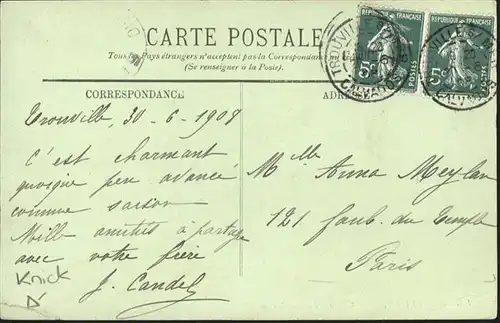 CARTE POSTALE
Tous les Pays étrangers n'acceptent pas la Correspondance
(Se renseigner à la Poste).
REPUBLIQUE FRANÇAISE
5c
POSTES
REPUBLIQUE FRANÇAISE
5c
POSTES
TROUVILLE
CALVADOS
CALVADOS
CORRESPONDANCE
Trouville, 30-6-1908
C'est charmant
quoique peu avancé
comme saison
Mille amitiés à partager
avec votre frère
J. Candel
Knick
ADRE
Mlle Anna Meylan
121 faub. du Temple
Paris